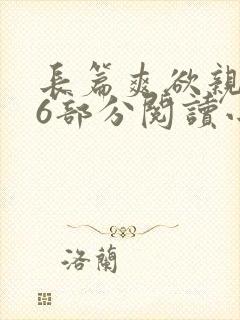 長篇爽欲親
6部分閱讀
洛蘭